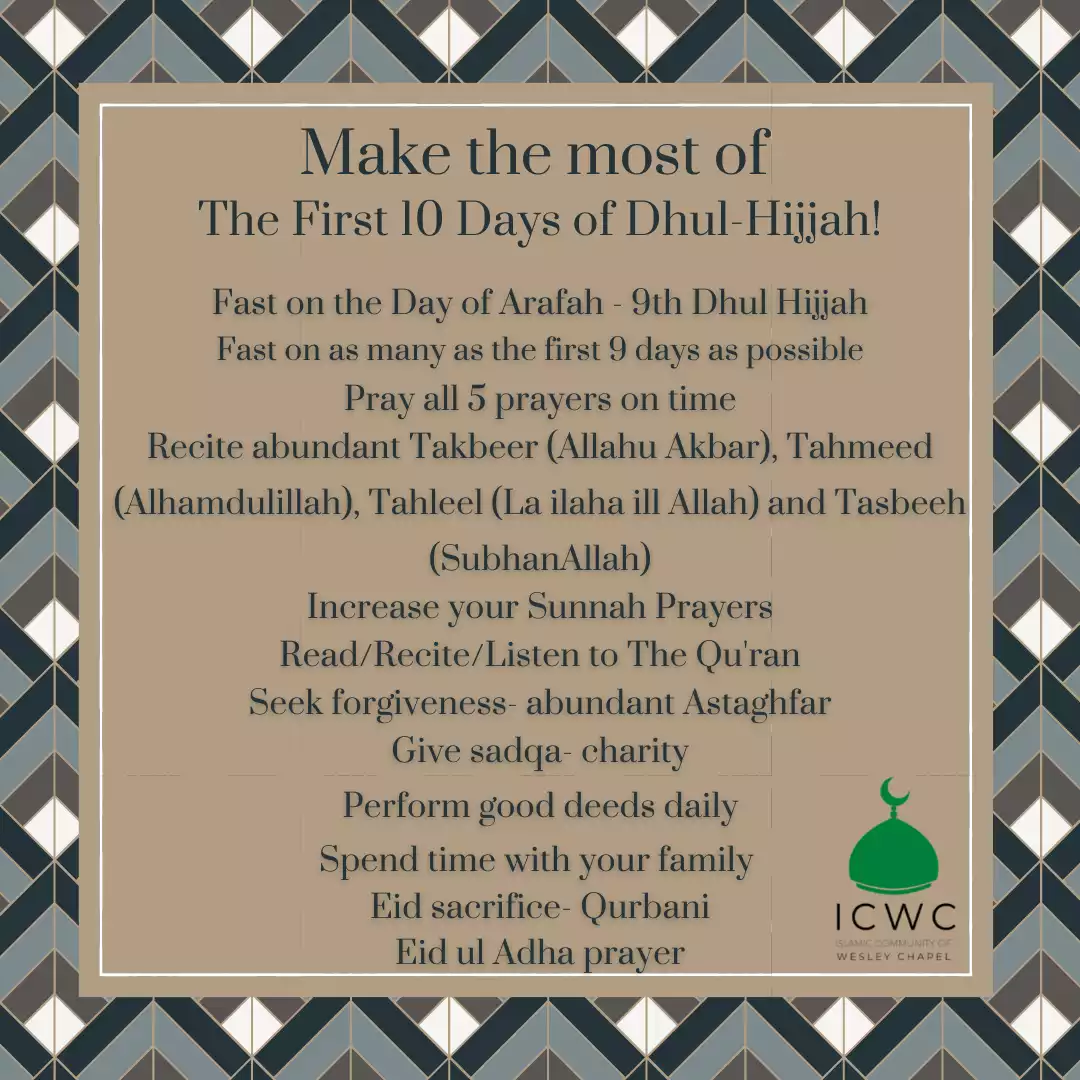 Make the most of
The First 10 Days of Dhul-Hijjah!
Fast on the Day of Arafah - 9th Dhul Hijjah
Fast on as many as the first 9 days as possible
Pray all 5 prayers on time
Recite abundant Takbeer (Allahu Akbar), Tahmeed
(Alhamdulillah), Tahleel (La ilaha ill Allah) and Tasbeeh
(SubhanAllah)
Increase your Sunnah Prayers
Read/Recite/Listen to The Qu'ran
Seek forgiveness- abundant Astaghfar
Give sadqa- charity
Perform good deeds daily
Spend time with your family
Eid sacrifice- Qurbani
Eid ul Adha prayer
ICWC
ISLAMIC COMMUNITY OF
WESLEY CHAPEL